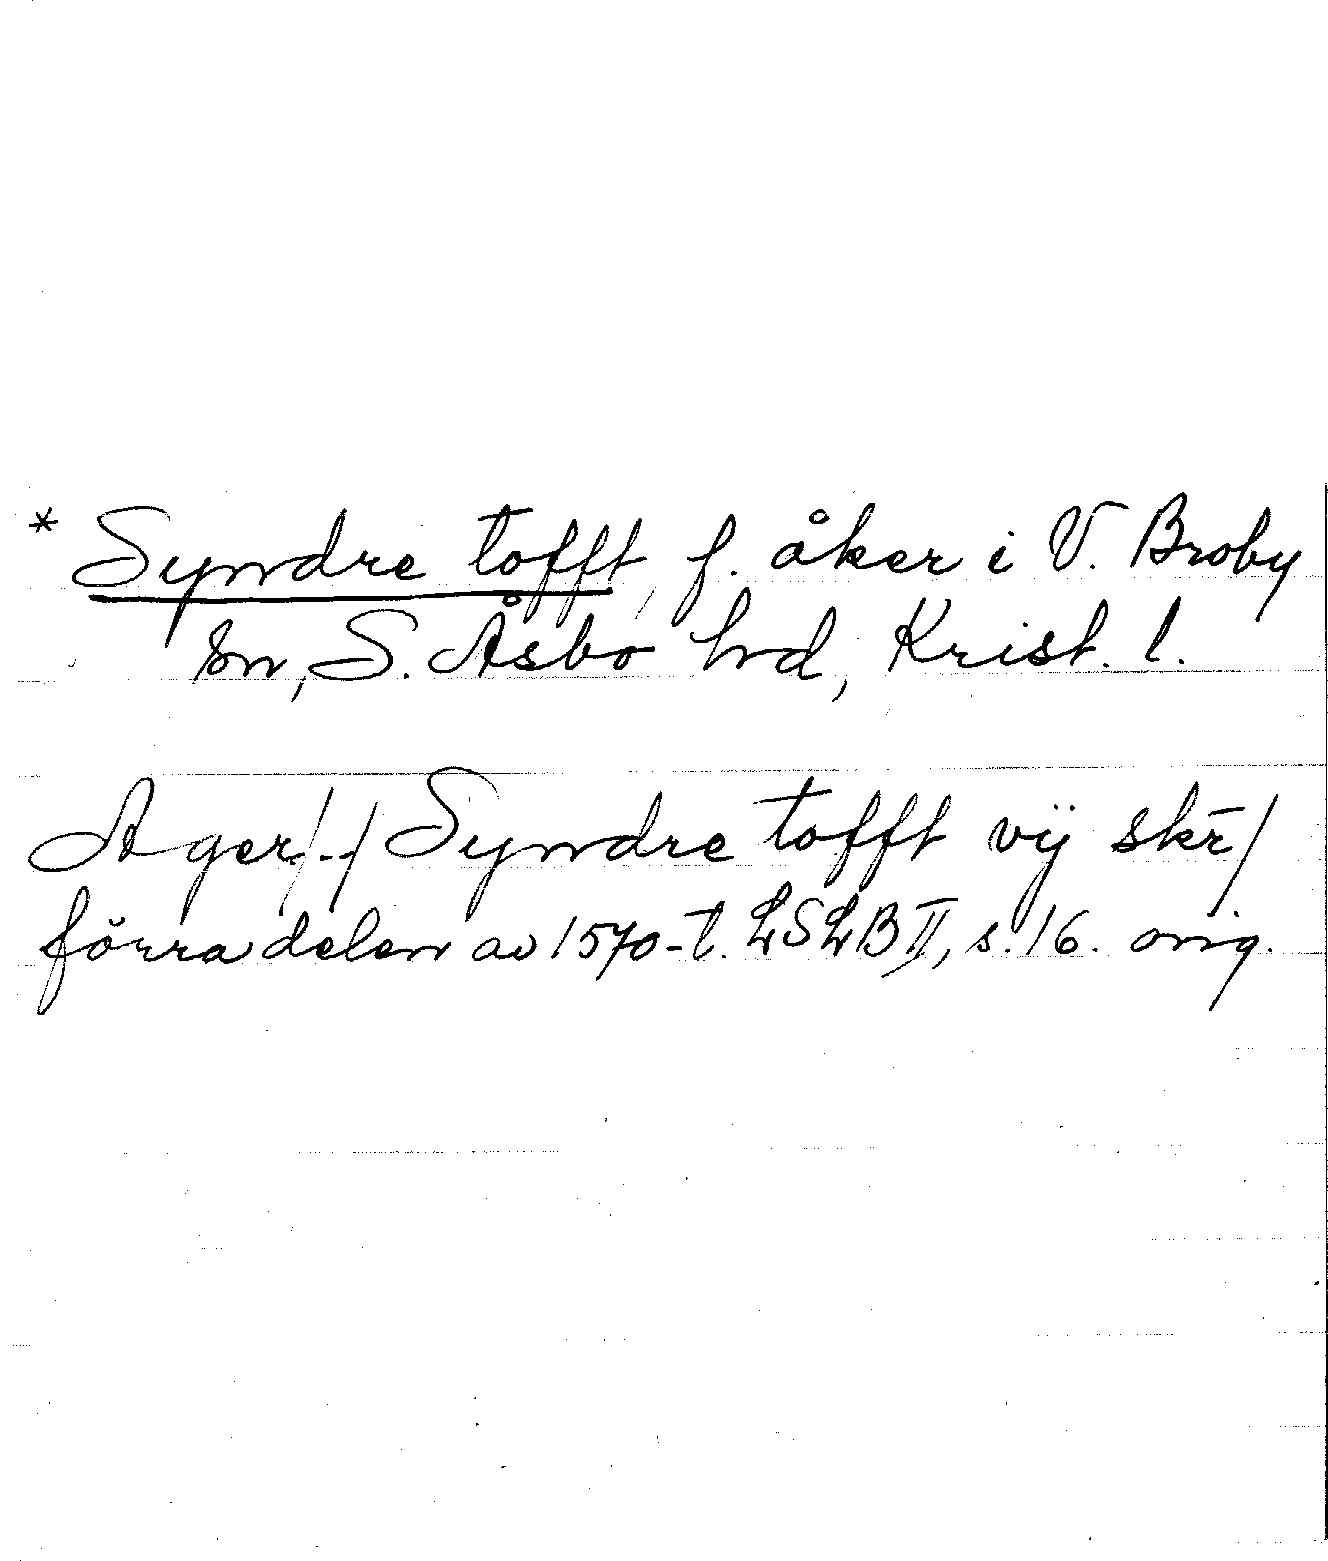 * Syndre tofft, f. åker i V. Broby
sn, S. Åsbo hd, Krist. l.
Ager/../ Syndre tofft vij skr̄/
förra delen av 1570-t. LSLB II, s. 16. orig.